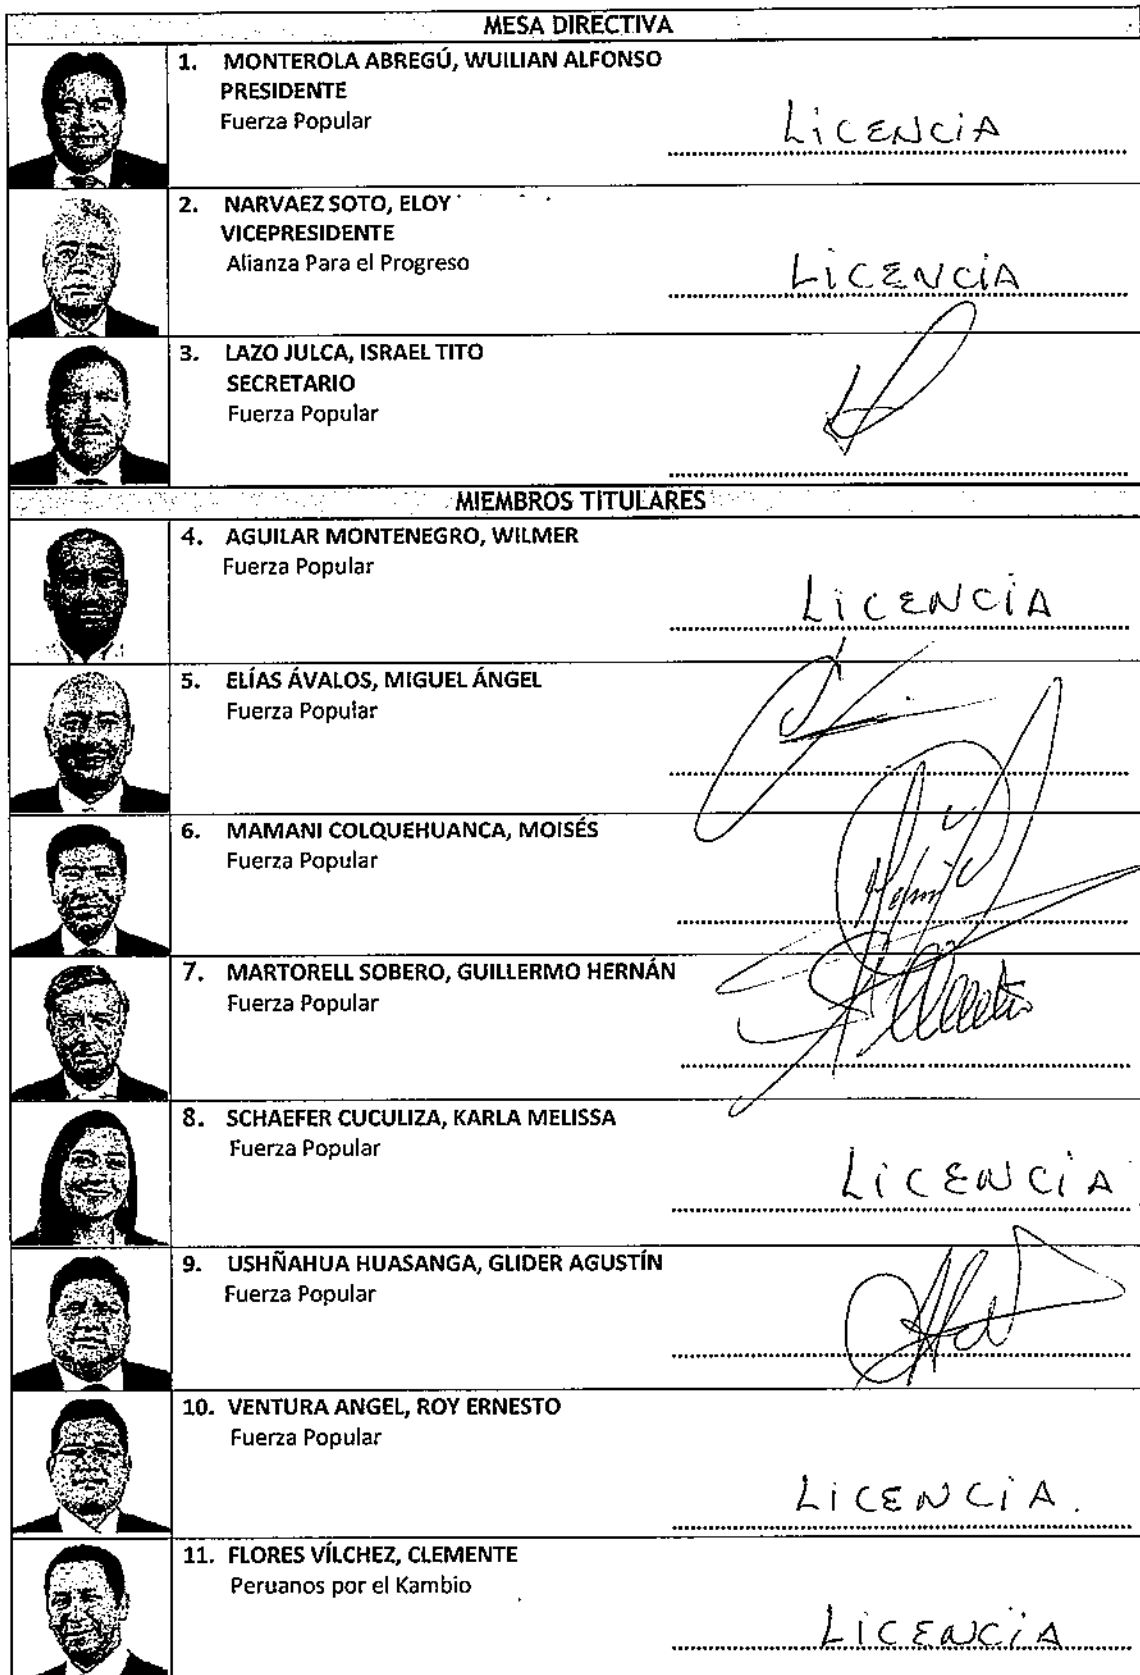 MESA DIRECTIVA
1. MONTEROLA ABREGÚ, WUILIAN ALFONSO
PRESIDENTE
Fuerza Popular
LiCENCiA
2. NARVAEZ SOTO, ELOY
VICEPRESIDENTE
Alianza Para el Progreso
LiCENCiA
3. LAZO JULCA, ISRAEL TITO
SECRETARIO
Fuerza Popular
MIEMBROS TITULARES
4. AGUILAR MONTENEGRO, WILMER
Fuerza Popular
LiCENCiA
5. ELÍAS ÁVALOS, MIGUEL ÁNGEL
Fuerza Popular
6. MAMANI COLQUEHUANCA, MOISÉS
Fuerza Popular
7. MARTORELL SOBERO, GUILLERMO HERNÁN
Fuerza Popular
8. SCHAEFER CUCULIZA, KARLA MELISSA
Fuerza Popular
LiCENCiA
9. USHÑAHUA HUASANGA, GLIDER AGUSTÍN
Fuerza Popular
10. VENTURA ANGEL, ROY ERNESTO
Fuerza Popular
LiCENCiA.
11. FLORES VÍLCHEZ, CLEMENTE
Peruanos por el Kambio
LiCENCiA